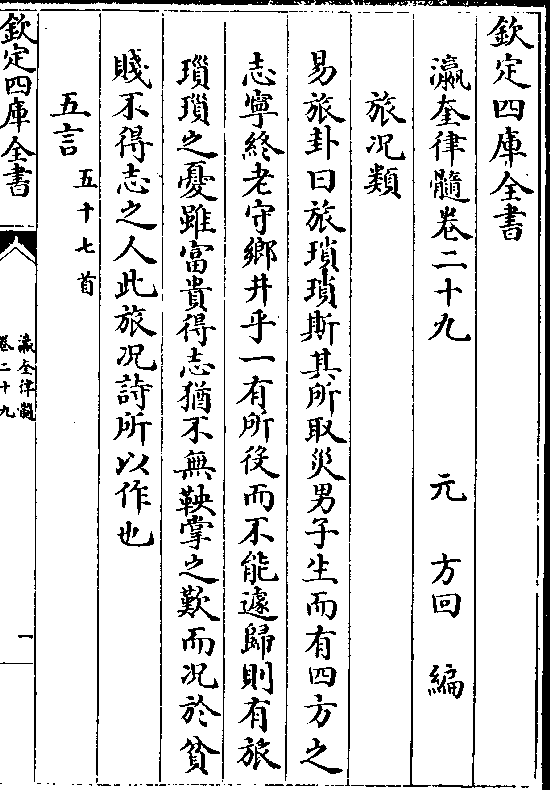 欽定四庫全書
瀛奎律髓卷二十九 元 方回 編
旅况類
易旅卦曰旅瑣瑣斯其所取災男子生而有四方之
志寧終老守鄉井乎一有所役而不能遽歸則有旅
瑣瑣之憂雖富貴得志猶不無鞅掌之歎而况於貧
賤不得志之人此旅况詩所以作也
五言 五十七首
欽定四庫全書
瀛奎律髓
卷二十九
一